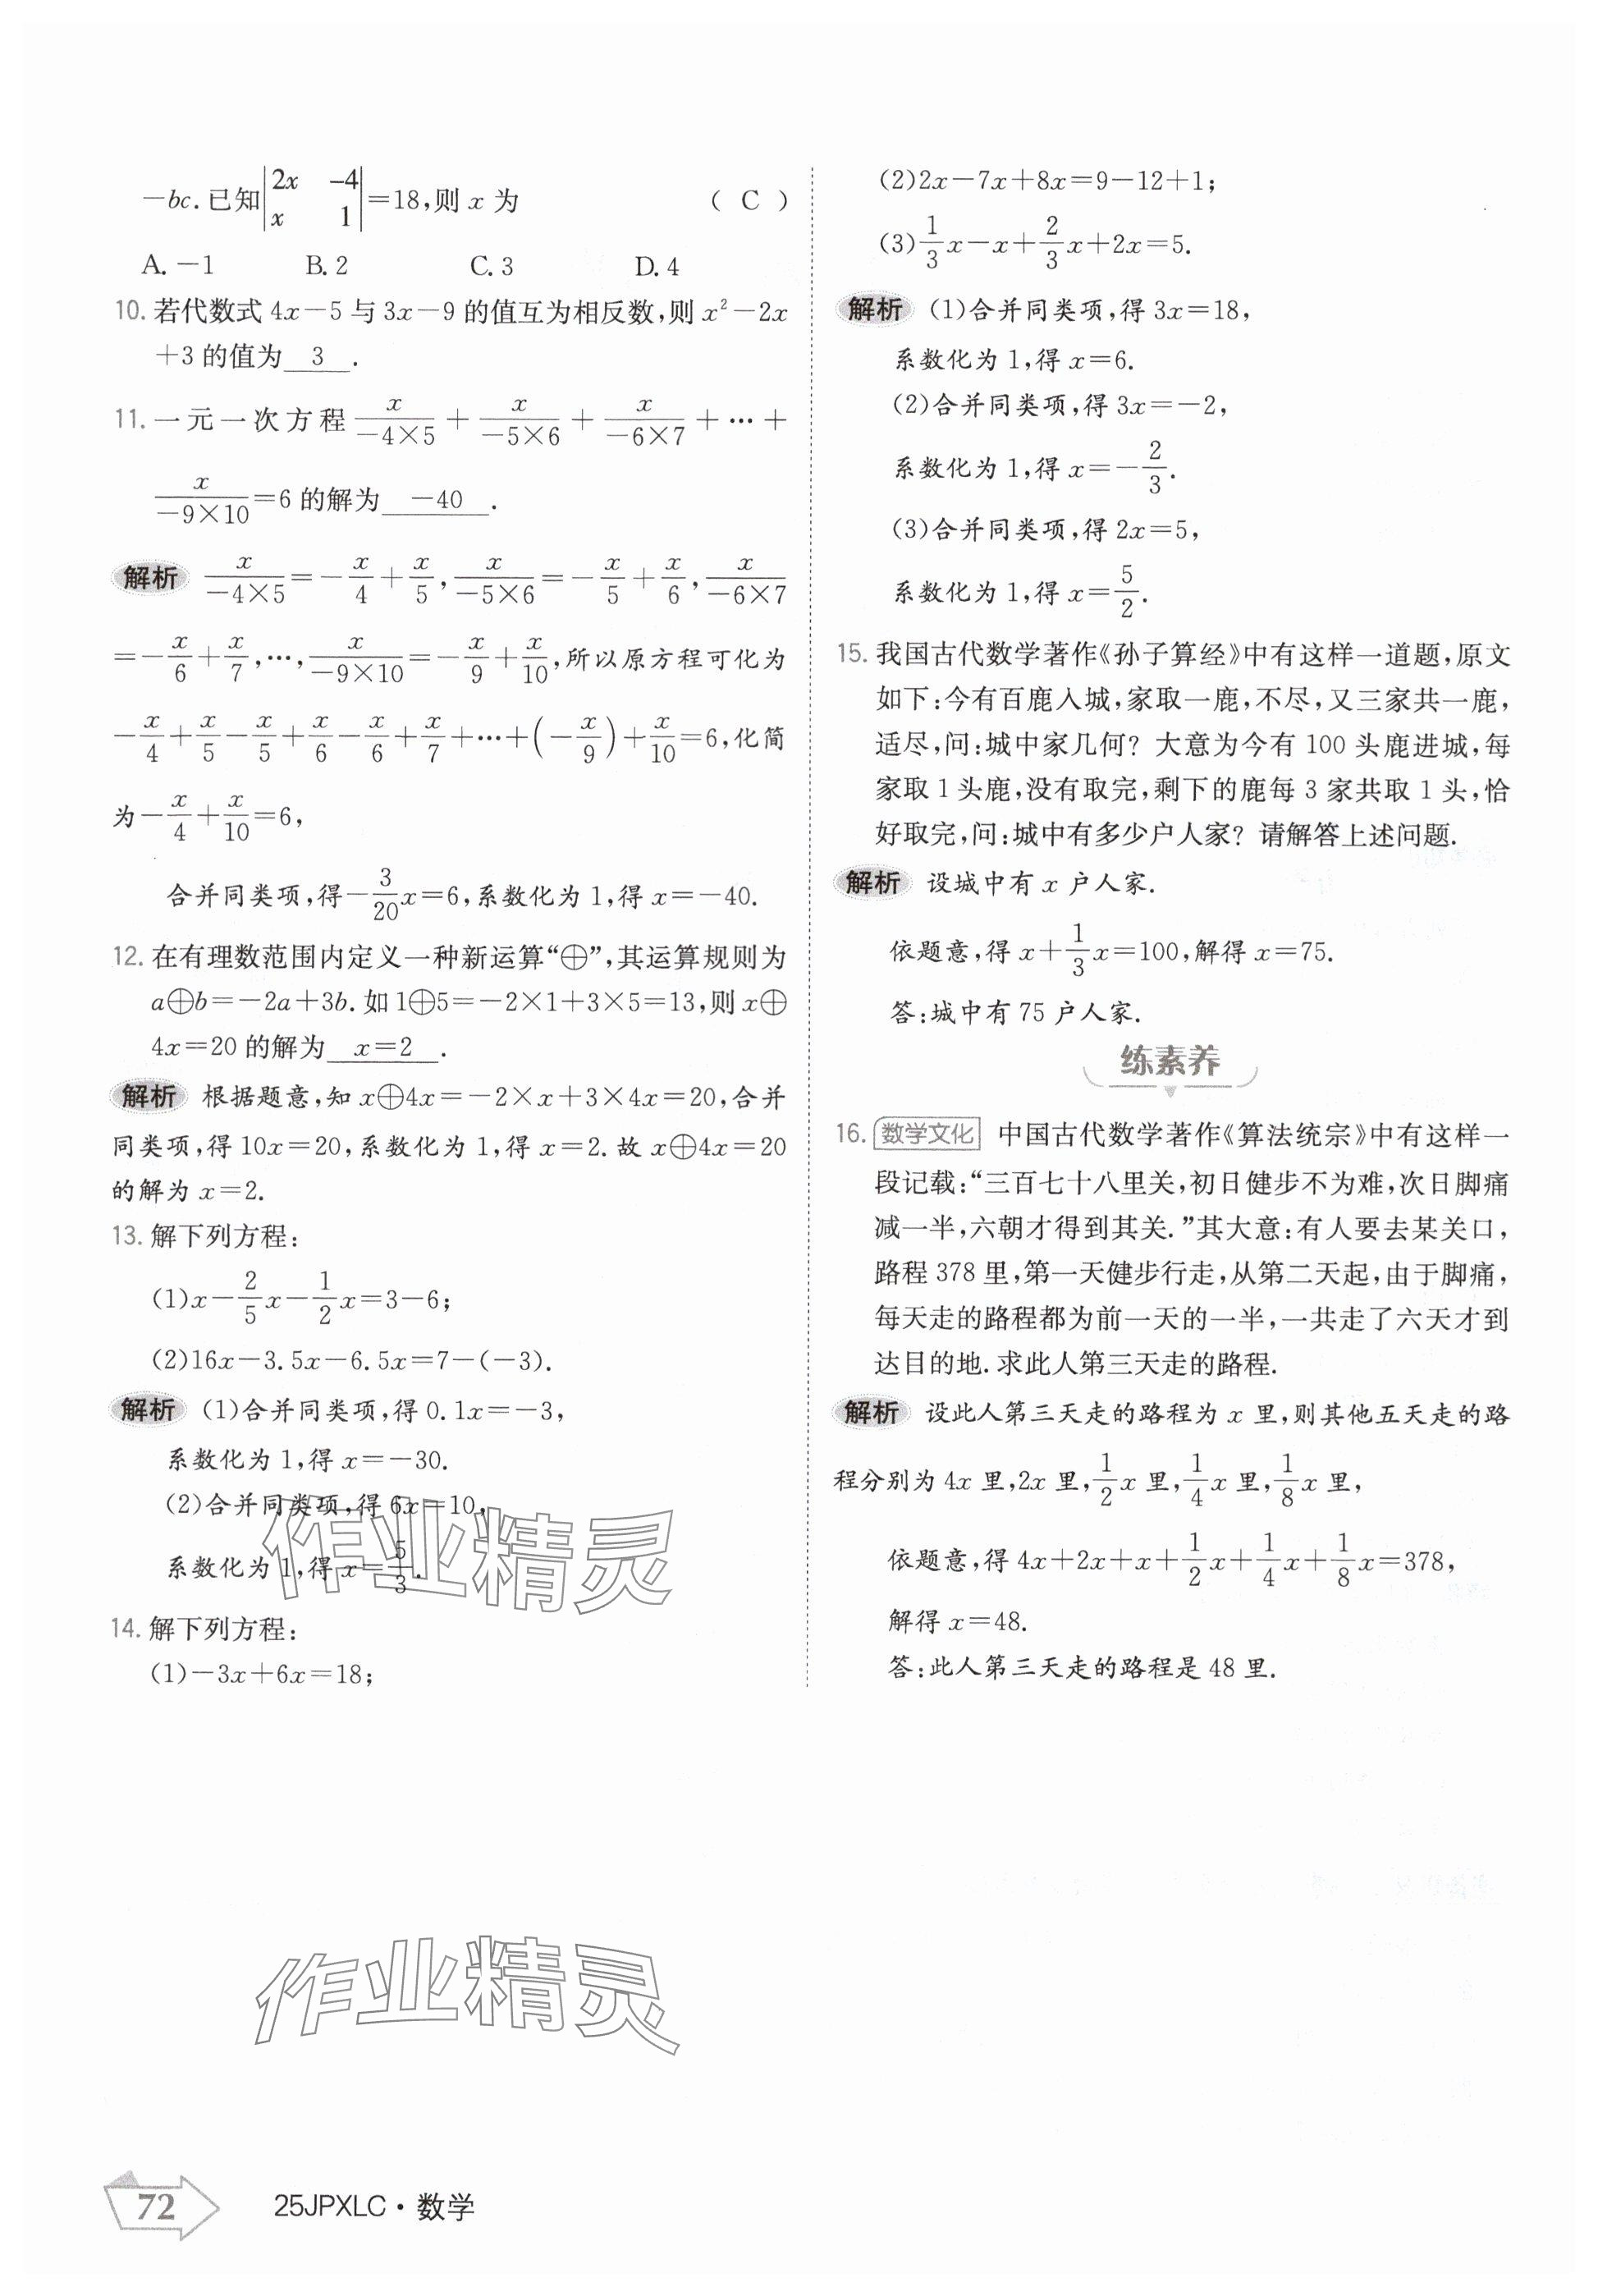 －bc. 已知|2x －4; x 1|＝18,则 x 为 ( C )
A. －1 B. 2 C. 3 D. 4
10. 若代数式 4x－5 与 3x－9 的值互为相反数,则 x²－2x
＋3 的值为 3 .
11. 一元一次方程 x/(－4×5)＋x/(－5×6)＋x/(－6×7)＋…＋
x/(－9×10)＝6 的解为 －40 .
解析 x/(－4×5)＝－x/4＋x/5, x/(－5×6)＝－x/5＋x/6, x/(－6×7)
＝－x/6＋x/7,…, x/(－9×10)＝－x/9＋x/10,所以原方程可化为
－x/4＋x/5－x/5＋x/6－x/6＋x/7＋…＋(－x/9)＋x/10＝6,化简
为－x/4＋x/10＝6,
合并同类项,得－3/20x＝6,系数化为 1,得 x＝－40.
12. 在有理数范围内定义一种新运算“⊕”,其运算规则为
a⊕b＝－2a＋3b. 如 1⊕5＝－2×1＋3×5＝13,则 x⊕
4x＝20 的解为 x＝2 .
解析 根据题意,知 x⊕4x＝－2×x＋3×4x＝20,合并
同类项,得 10x＝20,系数化为 1,得 x＝2. 故 x⊕4x＝20
的解为 x＝2.
13. 解下列方程:
(1)x－2/5x－1/2x＝3－6;
(2)16x－3.5x－6.5x＝7－(－3).
解析 (1)合并同类项,得 0.1x＝－3,
系数化为 1,得 x＝－30.
(2)合并同类项,得 6x＝10,
系数化为 1,得 x＝5/3.
14. 解下列方程:
(1)－3x＋6x＝18;
(2)2x－7x＋8x＝9－12＋1;
(3)1/3x－x＋2/3x＋2x＝5.
解析 (1)合并同类项,得 3x＝18,
系数化为 1,得 x＝6.
(2)合并同类项,得 3x＝－2,
系数化为 1,得 x＝－2/3.
(3)合并同类项,得 2x＝5,
系数化为 1,得 x＝5/2.
15. 我国古代数学著作《孙子算经》中有这样一道题,原文
如下:今有百鹿入城,家取一鹿,不尽,又三家共一鹿,
适尽,问:城中家几何? 大意为今有 100 头鹿进城,每
家取 1 头鹿,没有取完,剩下的鹿每 3 家共取 1 头,恰
好取完,问:城中有多少户人家? 请解答上述问题.
解析 设城中有 x 户人家.
依题意,得 x＋1/3x＝100,解得 x＝75.
答:城中有 75 户人家.
练素养
16. 数学文化 中国古代数学著作《算法统宗》中有这样一
段记载:“三百七十八里关,初日健步不为难,次日脚痛
减一半,六朝才得到其关.”其大意:有人要去某关口,
路程 378 里,第一天健步行走,从第二天起,由于脚痛,
每天走的路程都为前一天的一半,一共走了六天才到
达目的地. 求此人第三天走的路程.
解析 设此人第三天走的路程为 x 里,则其他五天走的路
程分别为 4x 里,2x 里,1/2x 里,1/4x 里,1/8x 里,
依题意,得 4x＋2x＋x＋1/2x＋1/4x＋1/8x＝378,
解得 x＝48.
答:此人第三天走的路程是 48 里.
作业精灵
作业精灵
72
25JPXLC·数学